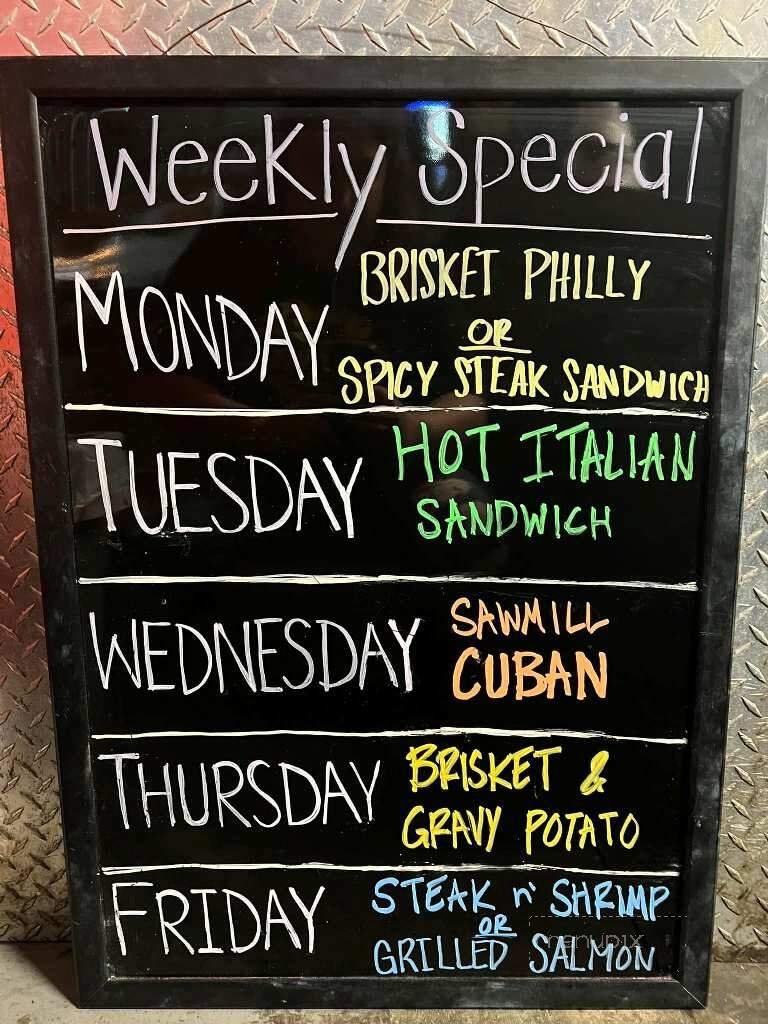 Weekly Special
MONDAY
BRISKET PHILLY
OR
SPICY STEAK SANDWICH
TUESDAY
HOT ITALIAN
SANDWICH
WEDNESDAY
SAWMILL
CUBAN
THURSDAY
BRISKET &
GRAVY POTATO
FRIDAY
STEAK n' SHRIMP
OR
GRILLED SALMON
menupix